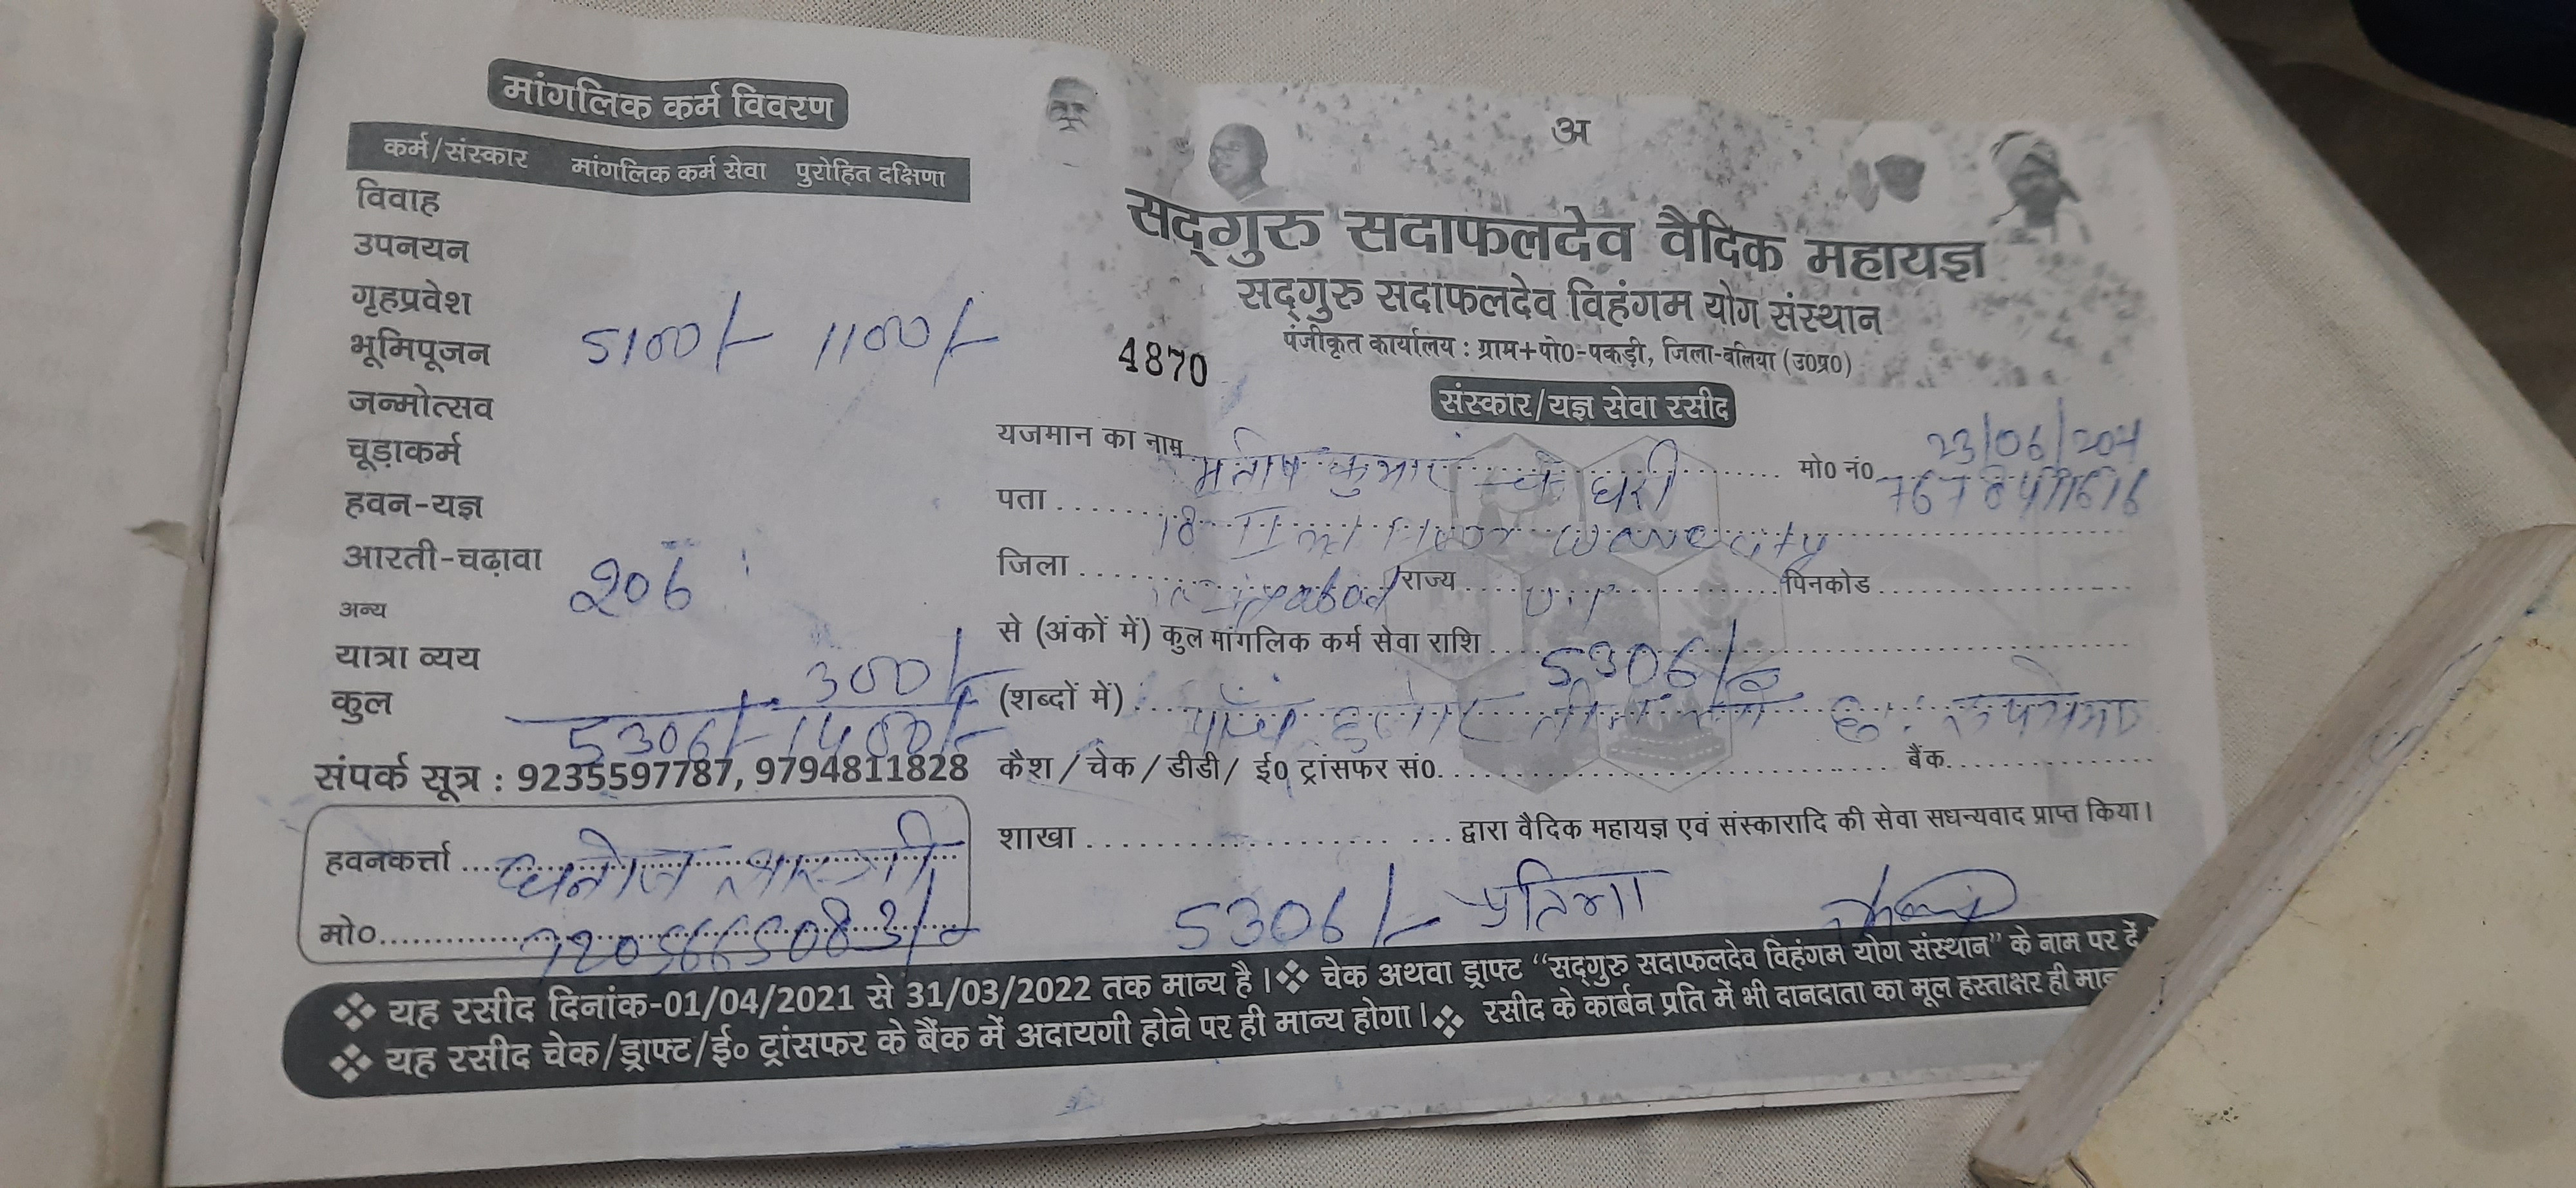 मांगलिक कर्म विवरण
कर्म/संस्कार मांगलिक कर्म सेवा पुरोहित दक्षिणा
विवाह
उपनयन
गृहप्रवेश
भूमिपूजन 5100/- 1100/-
जन्मोत्सव
चूड़ाकर्म
हवन-यज्ञ
आरती-चढ़ावा
अन्य 206
यात्रा व्यय 300/-
कुल 5306/- 1400/-
संपर्क सूत्र : 9235597787, 9794811828
हवनकर्त्ता
मो०
अ
सद्गुरु सदाफलदेव वैदिक महायज्ञ
सद्गुरु सदाफलदेव विहंगम योग संस्थान
पंजीकृत कार्यालय : ग्राम+पो0-पकड़ी, जिला-बलिया (उ0प्र0)
4870
संस्कार/यज्ञ सेवा रसीद
यजमान का नाम कुमार चौधरी मो0 नं0
पता
जिला राज्य U.P पिनकोड
से (अंकों में) कुल मांगलिक कर्म सेवा राशि 5306/-
(शब्दों में) पाँच हजार तीन सौ छः
कैश / चेक / डीडी / ई0 ट्रांसफर सं0 बैंक
शाखा द्वारा वैदिक महायज्ञ एवं संस्कारादि की सेवा सधन्यवाद प्राप्त किया।
5306/- प्रतिमा
❖ यह रसीद दिनांक-01/04/2021 से 31/03/2022 तक मान्य है। ❖ चेक अथवा ड्राफ्ट “सद्गुरु सदाफलदेव विहंगम योग संस्थान” के नाम पर दें
❖ यह रसीद चेक/ड्राफ्ट/ई० ट्रांसफर के बैंक में अदायगी होने पर ही मान्य होगा। ❖ रसीद के कार्बन प्रति में भी दानदाता का मूल हस्ताक्षर ही